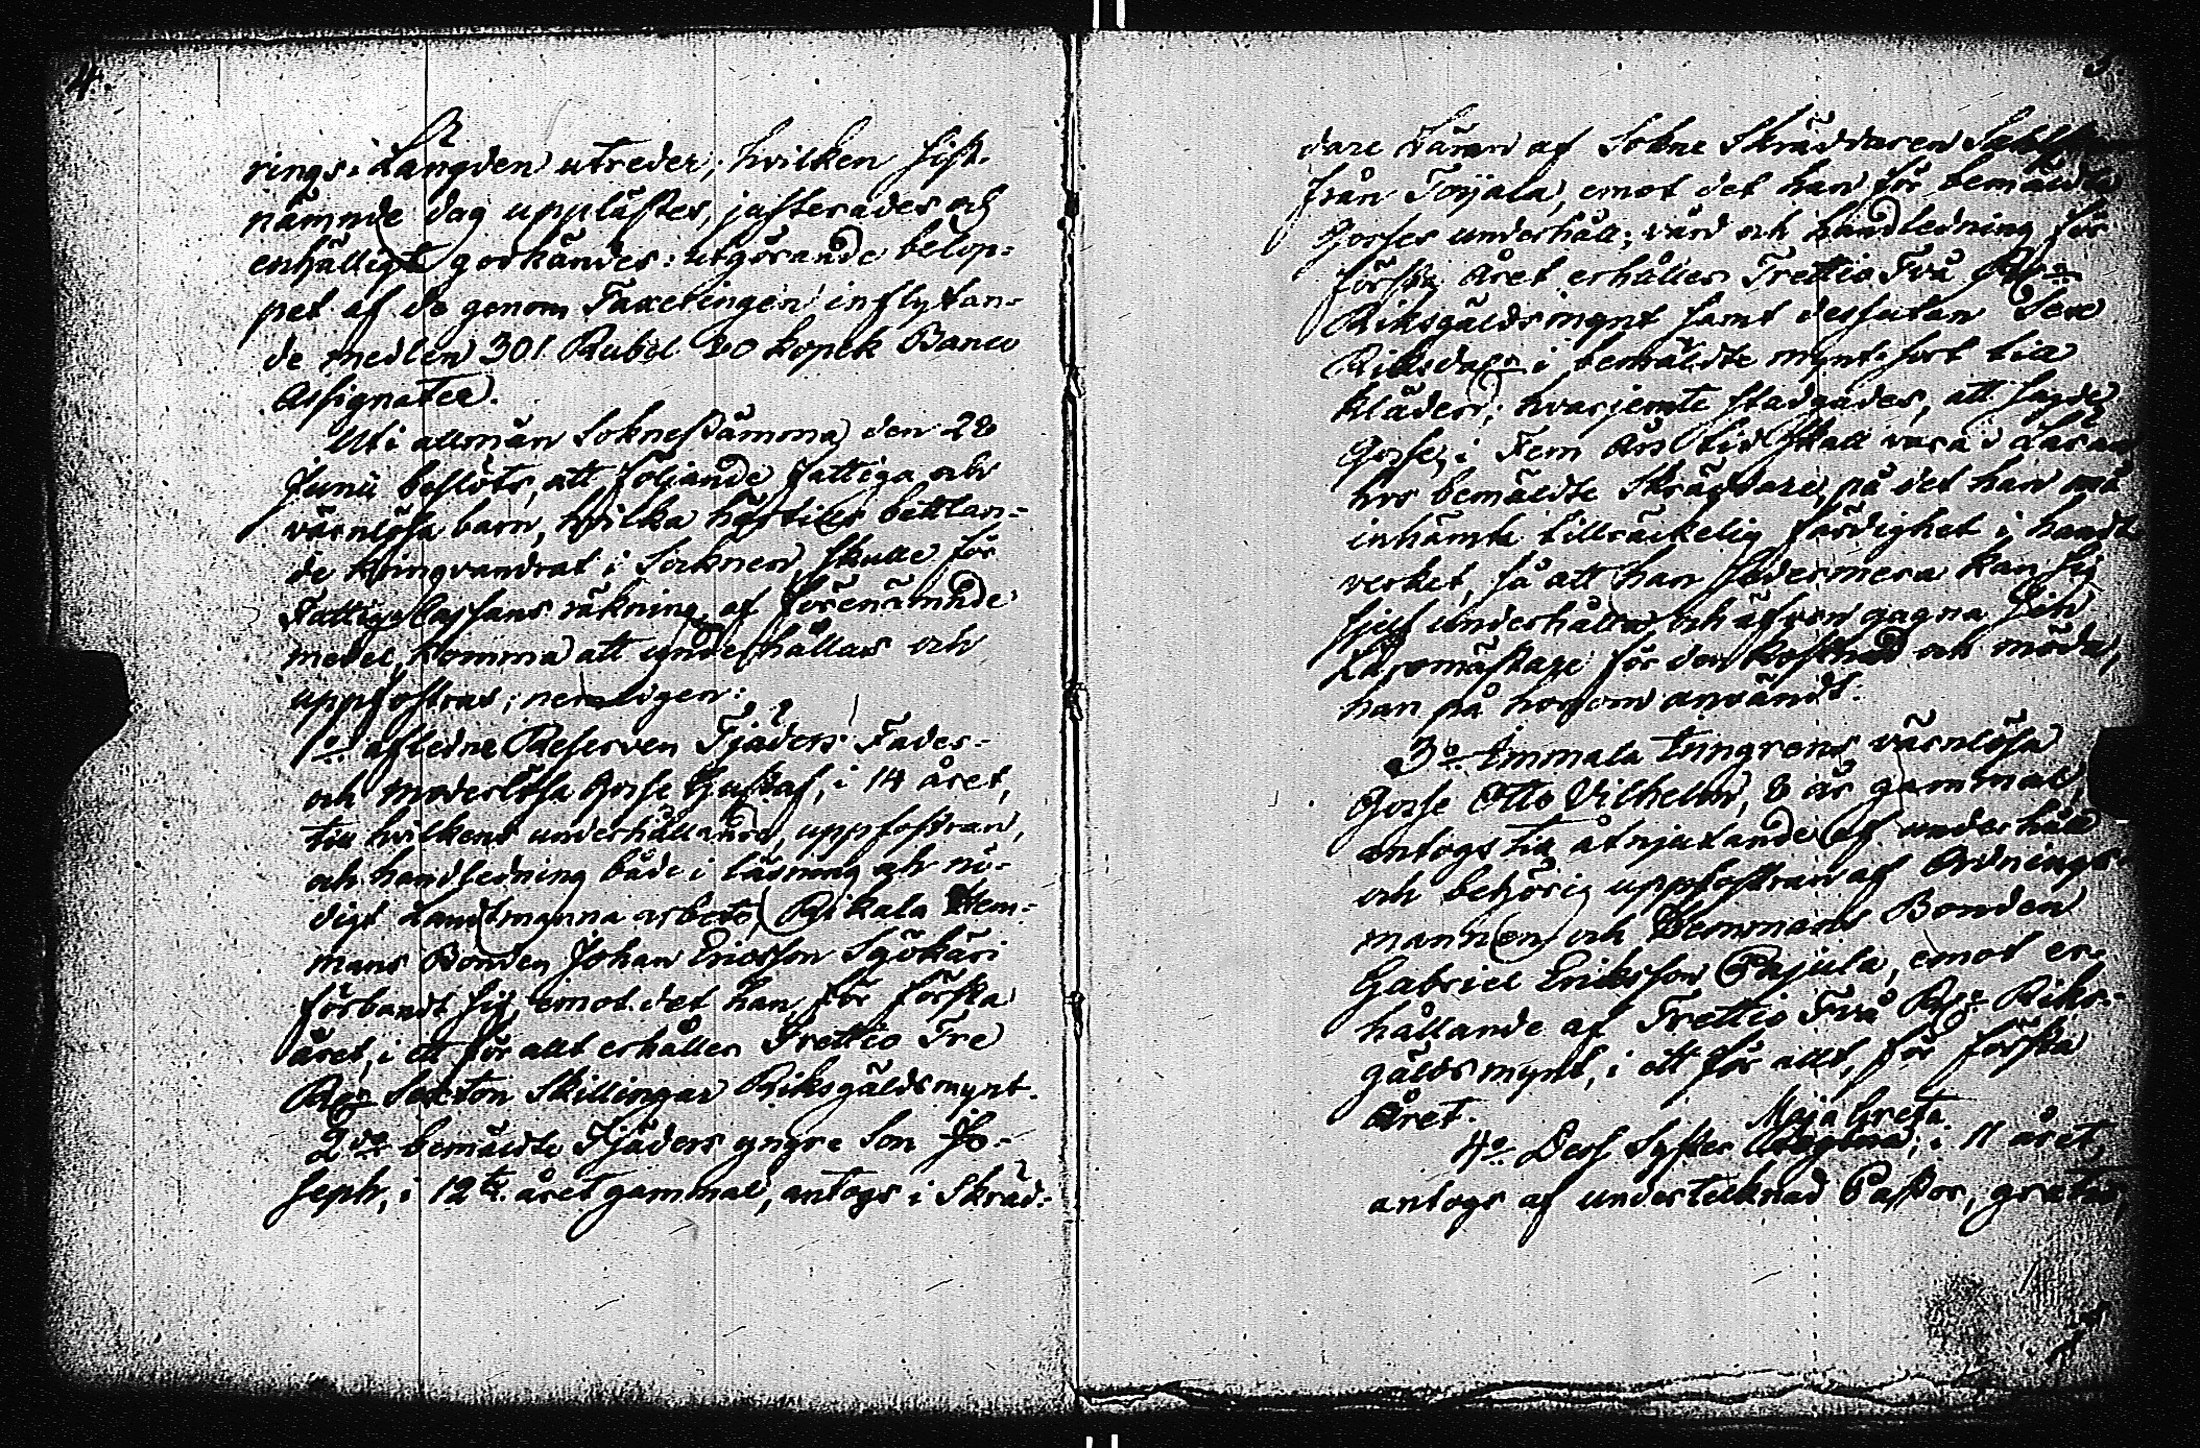 4.
rings-Längden utreder; hvilken sist-
nämnde dag upplästes, justerades och
enhälligt godkändes: utgörande belop-
pet af de genom Taxeringen inflytan-
de medlen 301 Rubel 20 kopek Banco
Assignater.
Uti allmän Sokneståmma den 28
Junii beslöts, att följande fattiga och
värnlösa barn, hvilka härtills bettlan-
de kringvandrat i Socknen, skulle för
Fattig Cassans räkning af förenämnde
medel, komma att underhållas och
uppfostras; nemligen:
1:o afledne Reserven Fjäders Fader-
och moderlösa Gosse Gustaf, i 14 året,
till hvilkens underhållande, uppfostran,
och handledning både i läsning och nö-
digt Landtmanna arbete, Rikala Hem-
mans Bonden Johan Ericsson Sjökäri
förbandt sig, emot det han, för första
året, i ett för allt erhåller Trettio Tre
Rdr Sexton Skillingar Riksgäldsmynt.
2:do bemäldte Fjäders yngre Son Jo-
seph, i 12te året gammal, antogs i Skräd-
5.
dare Läran af Sokne Skräddaren
från Toijala, emot det han för bemäldte
Gosses underhåll, vård och handledning för
första året erhåller Trettio Två Rdr
Riksgäldsmynt samt dessutan Sex
Riksdaler i bemäldte mynt-sort till
kläder; hvarjemte stadgades, att sagde
Gosse, i Fem års tid skall vara i Läran
hos bemäldte Skräddare, på det han må
inhämta tillräckelig färdighet i handt-
verket, så att han sedermera kan sig
sjelf underhålla och äfven gagna sin
Läromästare för den kostnad och möda,
han på honom användt.
3:o Immala Tinngrens värnlösa
Gosse Otto Vilhelm, 8 år gammal,
antogs till åtnjutande af underhåll
och behörig uppfostran af Ordnings-
mannen och Hemmans Bonden
Gabriel Eriksson Pajula, emot er-
hållande af Trettio Två Rdr Riks-
gälds mynt, i ett för allt, för första
året.
4:o Dess Syster Maja Greta, i 11 året,
antogs af undertecknad Pastor, gratis,